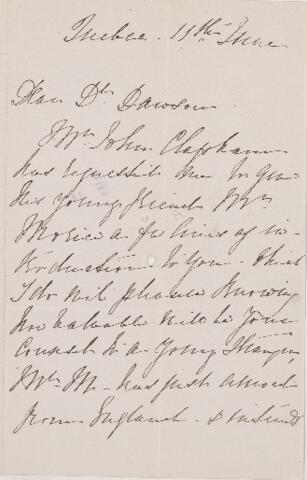 Quebec. 11th June
Dear Dr Dawson
Mr John Clapham
has requested me to give
his young friend Mr
Morice a few lines of in-
troduction to you - which
I do with pleasure knowing
how valuable will be your
counsel to a young stranger,
Mr M- has just arrived
from England - & intends